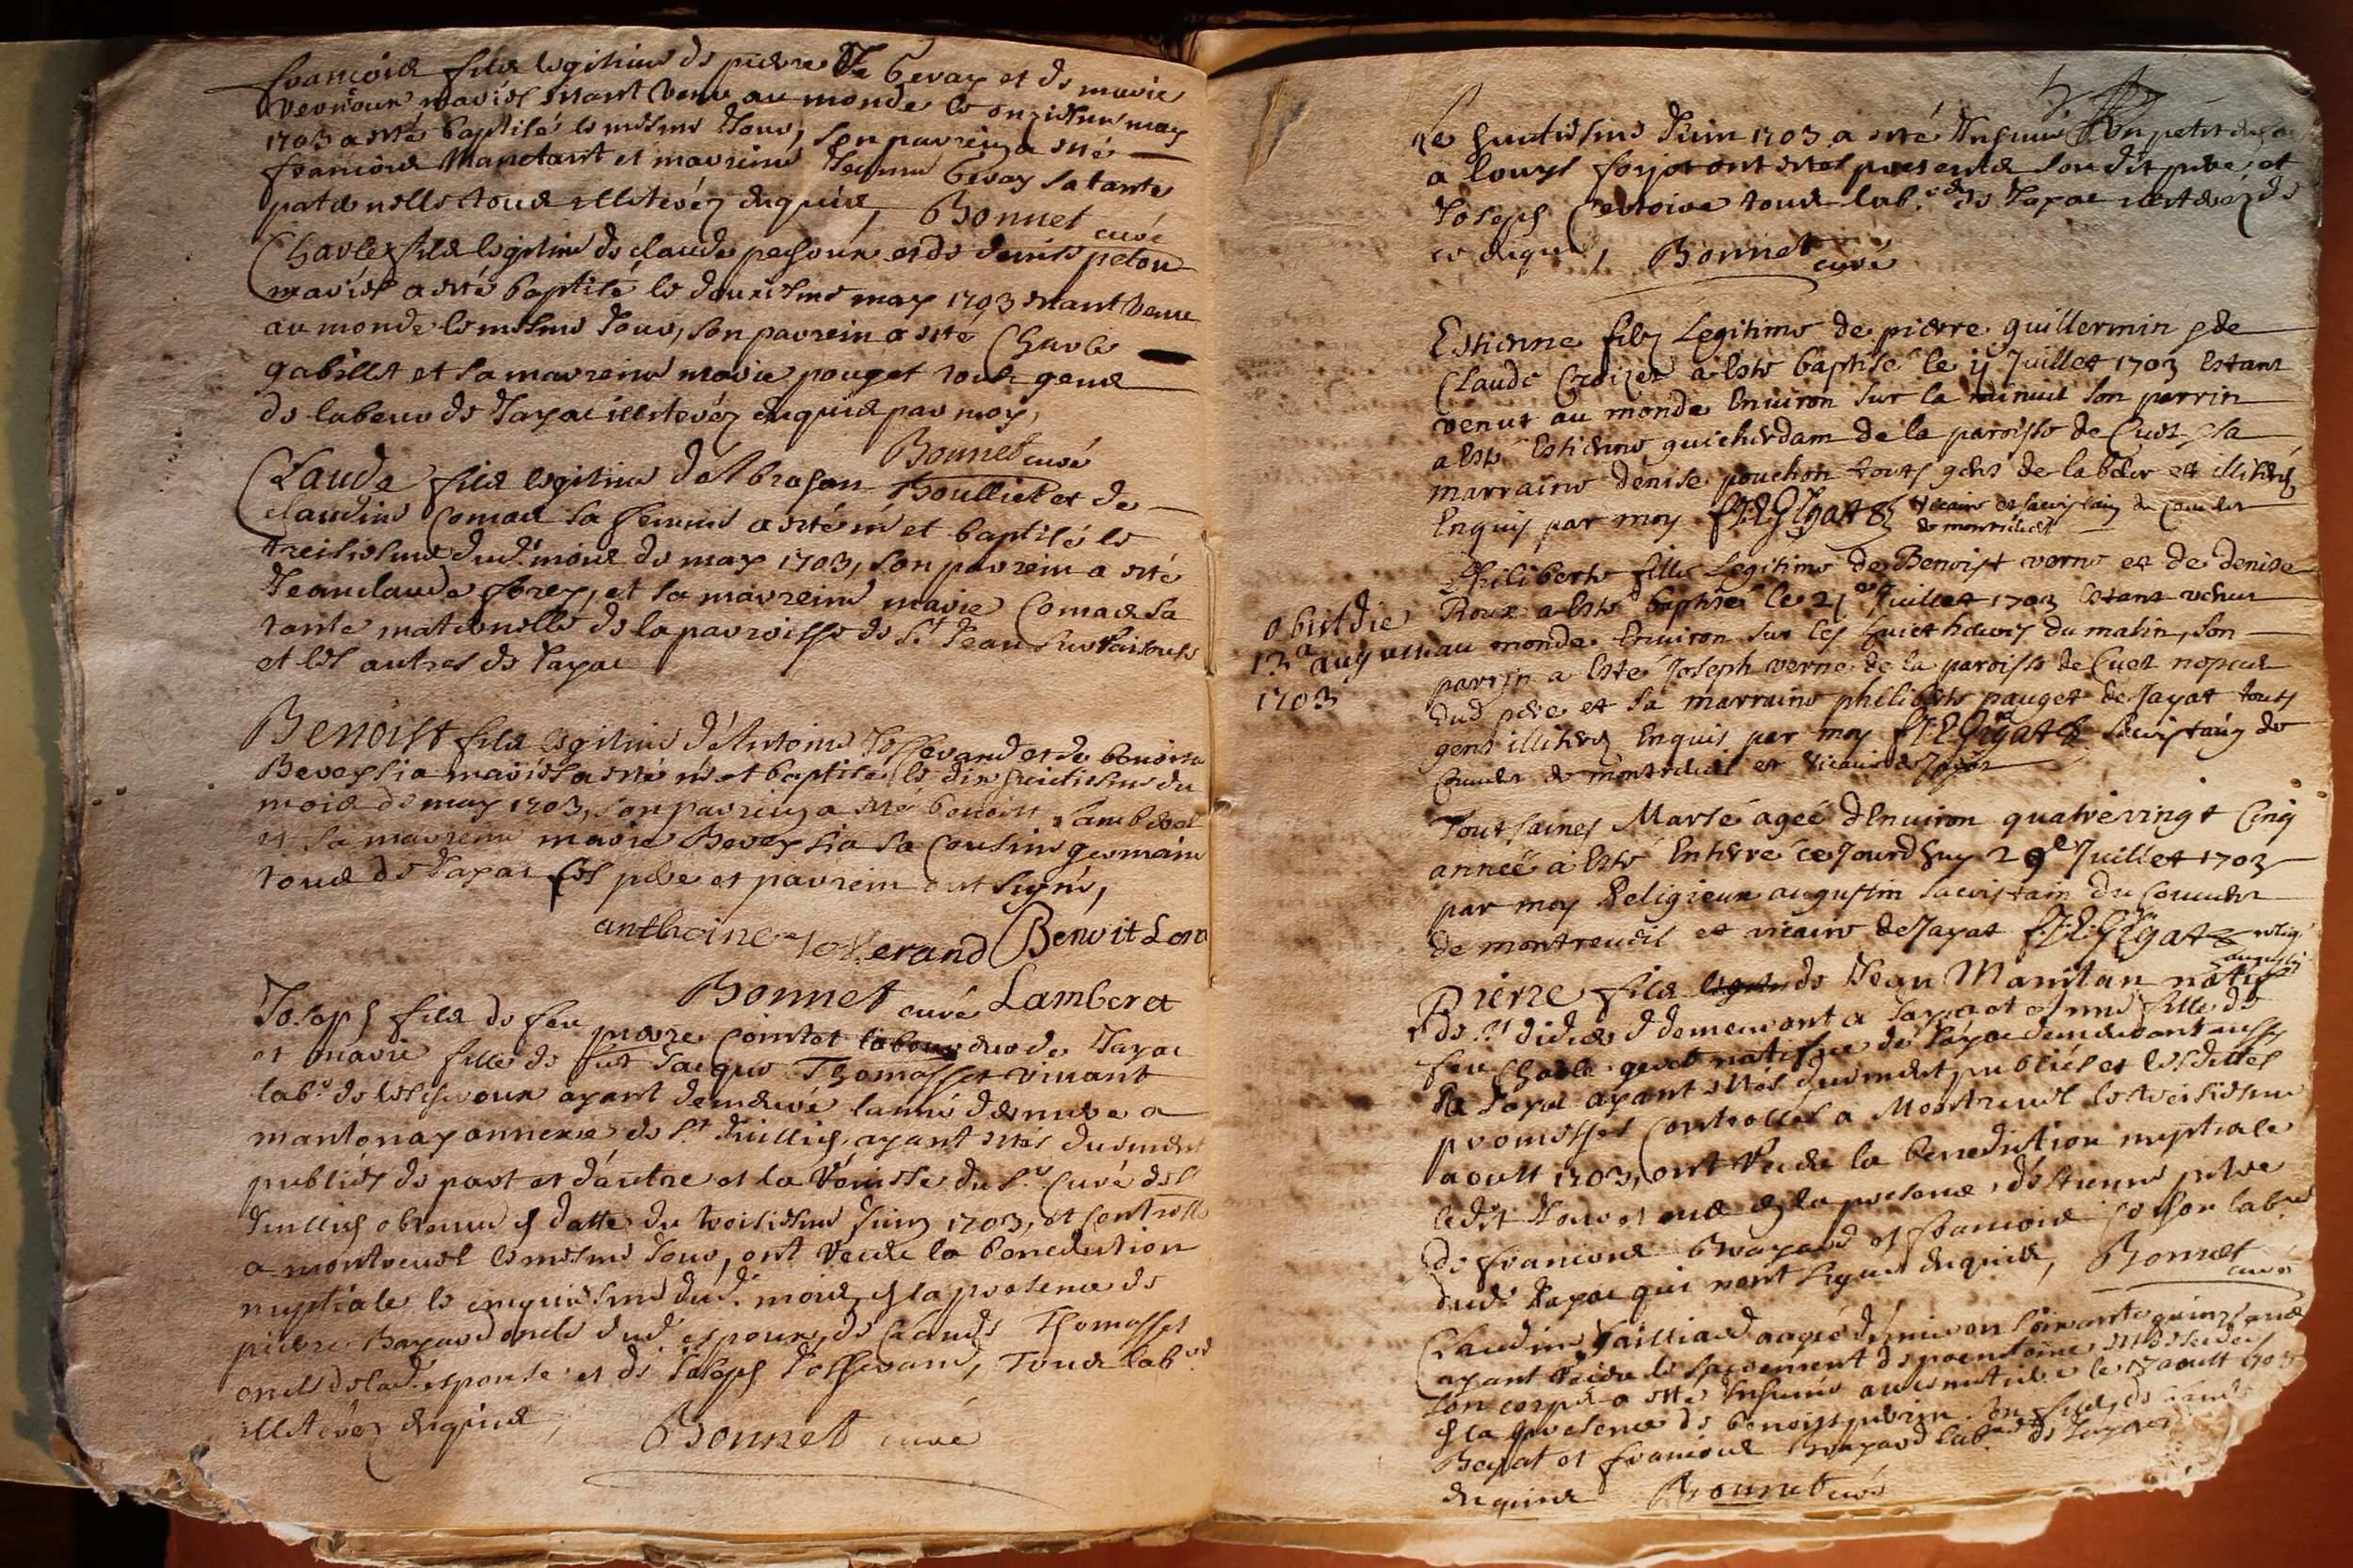 françois fils legitime de pierre Gevay et de marie
mariés estant venu au monde le onzieme may
1703 a esté baptisé le mesme Jour, son parrein a esté
françois et marreine Jeanne Gevay sa tante
paternelle tous illiterés enquis, Bonnet curé
Charle fils legitime de claude et de denise peton
mariés a esté baptisé le douzieme may 1703 estant venu
au monde le mesme Jour, son parrein a esté Charle
gabillet et sa marreine marie pouget tous gens
de labeur de Jayac illiterés enquis par moy,
Bonnet curé
Claude fils legitime d'Abraham Boulliet et de
claudine Comas sa femme a esté né et baptisé le
treisiesme dud. mois de may 1703, son parrein a esté
Jeanclaude forey, et sa marreine marie Comas sa
tante maternelle de la parroisse de St Jean sur Raisouse
et les autres de Jayac
Benoist fils legitime d'Antoine Josserand et de benoiste
mariés a esté né et baptisé le dix huictiesme du
mois de may 1703, son parrein a esté benoist Lamberet
et sa marreine marie sa Cousine germaine
tous de Jayac les pere et parrein ont signé,
anthoine Josserand Benoit Lam
Bonnet curé Lamberet
Joseph fils de feu pierre Cointet laboureur de Jayac
et marie fille de fut Jacque Thomasset vivant
labr. de ayant demeuré l'année derniere a
mantenay annexe de St Jullien, ayant estés duement
publiés de part et d'autre et la remise du Sr. Curé de St
Jullien obtenue en datte du troisiesme Juin 1703, et controllé
a montreuel le mesme Jour, ont receu la benediction
nuptiale le cinquiesme dud. mois, en la presence de
pierre Bayard oncle dud. espoux, de Claude Thomasset
oncle de lad. espouse et de Joseph Josserand, Tous labrs
illiterés enquis,
Bonnet curé
Le huictiesme Juin 1703 a esté Inhumé Un petit
a Louys forjot ont estés presents son dit pere, et
Joseph tous labrs. de Jayac illiterés de
ce enquis, Bonnet curé
Estienne filz Legitime de pierre guillermin & de
Claude Croizet a esté baptisé le ij Juillet 1703 Estant
venut au monde Environ sur la minuit son parrin
a esté Estienne guicherdam de la paroisse de Cuet & sa
marraine denise pouchon touts gens de labeur et illiterés
Enquis par moy vicaire et sacristain du couvent
de montreuel
obiit die
13a augusti
1703
Philiberte fille Legitime de Benoist verne et de denise
Roux a esté baptisé le 21 Juillet 1703 Estant venue
au monde Environ sur les huict heures du matin, son
parrin a esté Joseph verne de la paroisse de Cuet nepveu
dud pere et sa marraine philiberte pauget de Jayat touts
gens illiterés Enquis par moy sacristaing du
Couvent de montreuel et vicaire de Jayat
Tout saincs Marsé ageé d'Environ quatre vingt Cinq
annéé a esté Enterré ce Jourd'huy 29e Juillet 1703
par moy Religieux augustin sacristain du Couvent
de montreueil et vicaire de Jayat relig.
augustin
Pierre fils de Jean Manitan natif
de St didier & demeurant a Jayac et fille de
feu Charle native de Jayac demeurant aussy
a Jayac ayant estés duement publiés et lesdittes
promesses Controllés a Montreuel le troisiesme
aoust 1703, ont receu la benediction nuptiale
ledit Jour et mois en la presence d'Estienne
de françois Brayard et françois labrs
dud. Jayac qui n'ont signé enquis, Bonnet
curé
Claudine aagée d'environ soixante quinze ans
ayant receu le sacrement de poenitence est decedée
son corps a esté Inhumé au cimetiere le 17 aoust 1703
en la presence de benoist
et françois Brayard labrs. de Jayac
enquis Bonnet curé